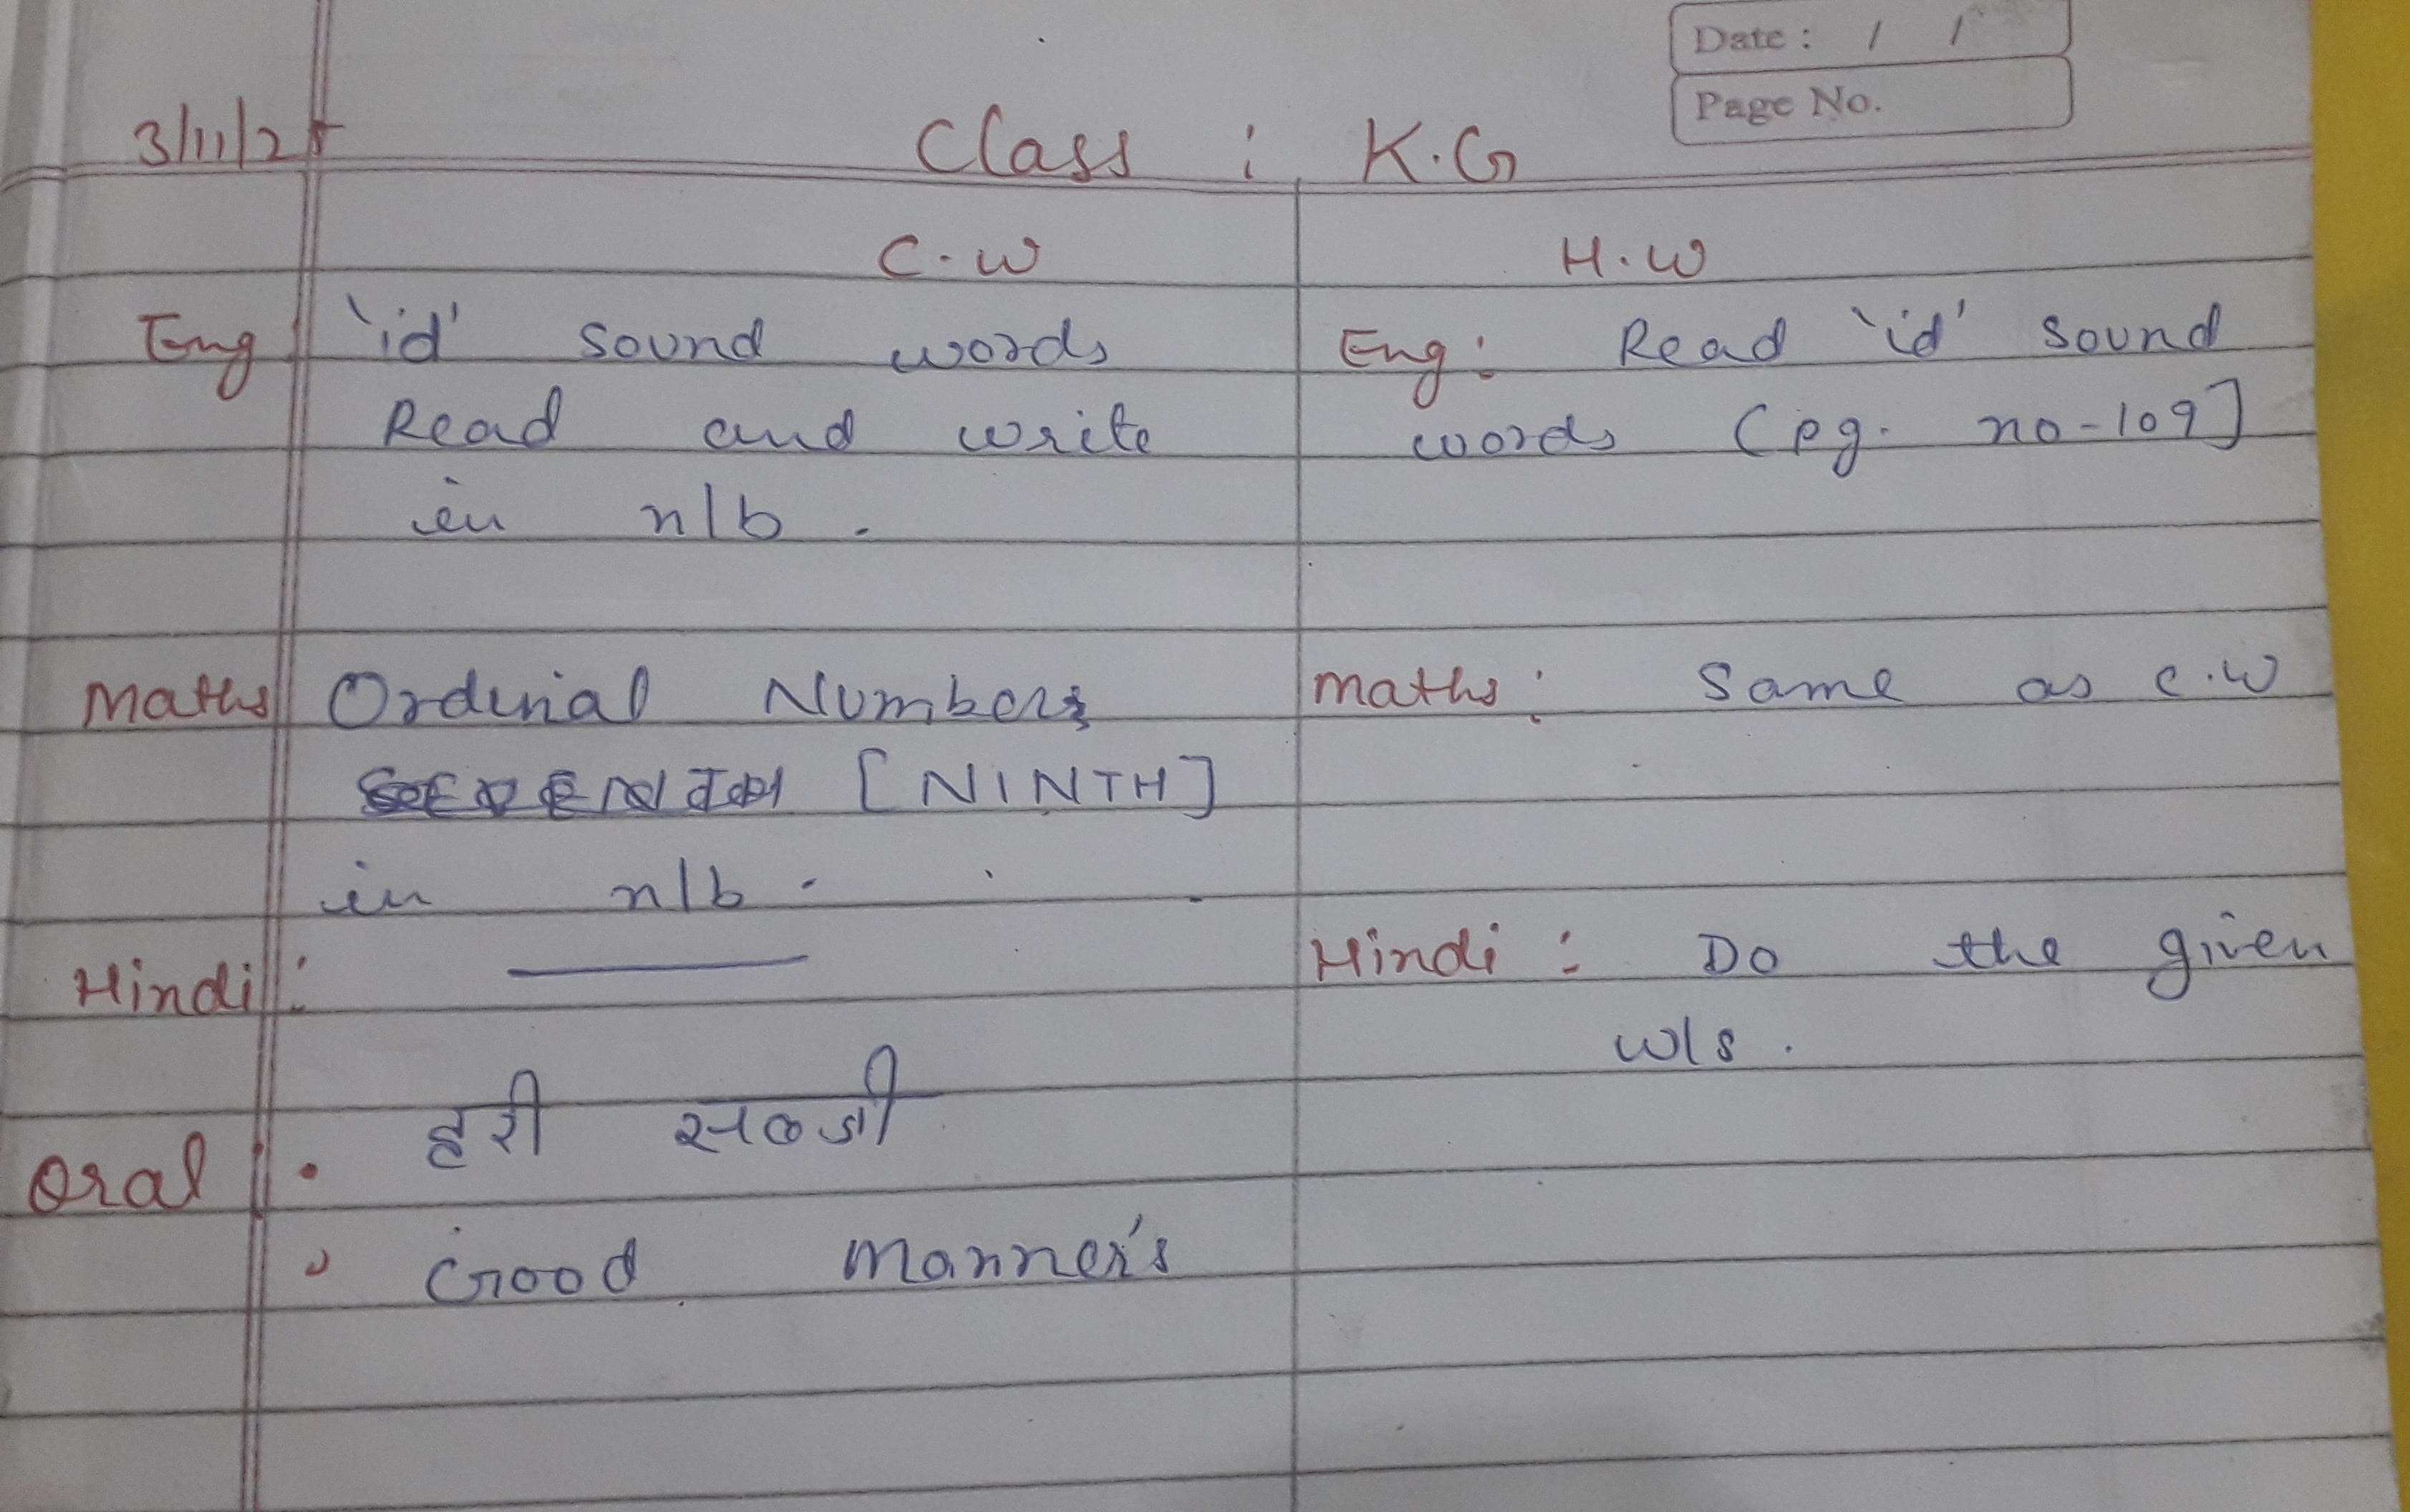 Date : / /
Page No.
3/11/25 Class : K.G
C.W
Eng 'id' sound words
Read and write
in n/b.
Maths Ordinal Numbers
[NINTH]
in n/b.
Hindi :
Oral • हरी सब्जी
• Good Manner's
H.W
Eng: Read 'id' sound
words (pg. no-109]
Maths: Same as C.W
Hindi : Do the given
w/s.